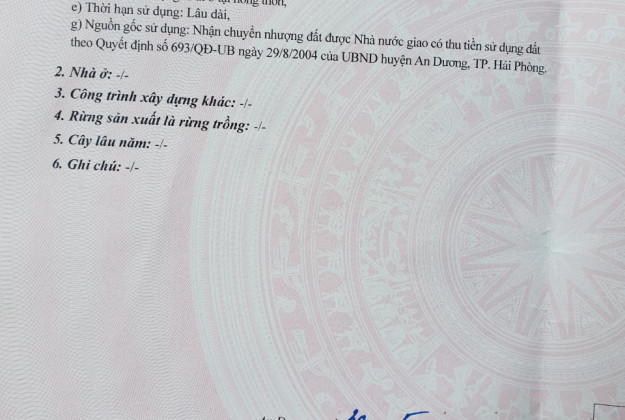 e) Thời hạn sử dụng: Lâu dài,
g) Nguồn gốc sử dụng: Nhận chuyển nhượng đất được Nhà nước giao có thu tiền sử dụng đất
theo Quyết định số 693/QĐ-UB ngày 29/8/2004 của UBND huyện An Dương, TP. Hải Phòng.
2. Nhà ở: -/-
3. Công trình xây dựng khác: -/-
4. Rừng sản xuất là rừng trồng: -/-
5. Cây lâu năm: -/-
6. Ghi chú: -/-